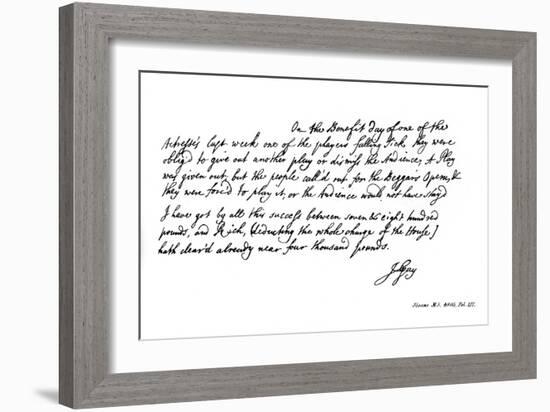 On the Benefit day of one of the
Actresse's last week one of the players falling Sick they were
oblig'd to give out another play or dismiss the Audience, A Play
was given out, but the people call'd out for the Beggar's Opera, &
they were forc'd to play it, or the Audience would not have stay'd
I have got by all this success between seven & eight hundred
pounds, and Rich, (deducting the whole charge of the House,)
hath clear'd already near four thousand pounds.
J Gay
Sloane M.S.